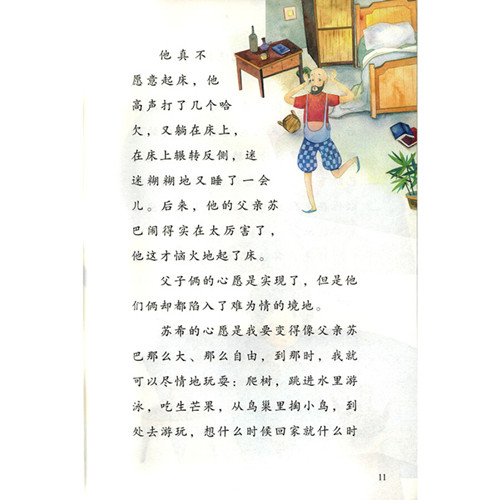 他真不
愿意起床，他
高声打了几个哈
欠，又躺在床上，
在床上辗转反侧，迷
迷糊糊地又睡了一会
儿。后来，他的父亲苏
巴闹得实在太厉害了，
他这才恼火地起了床。
父子俩的心愿是实现了，但是他
们俩却都陷入了难为情的境地。
苏希的心愿是我要变得像父亲苏
巴那么大、那么自由，到那时，我就
可以尽情地玩耍：爬树，跳进水里游
泳，吃生芒果，从鸟巢里掏小鸟，到
处去游玩，想什么时候回家就什么时
11